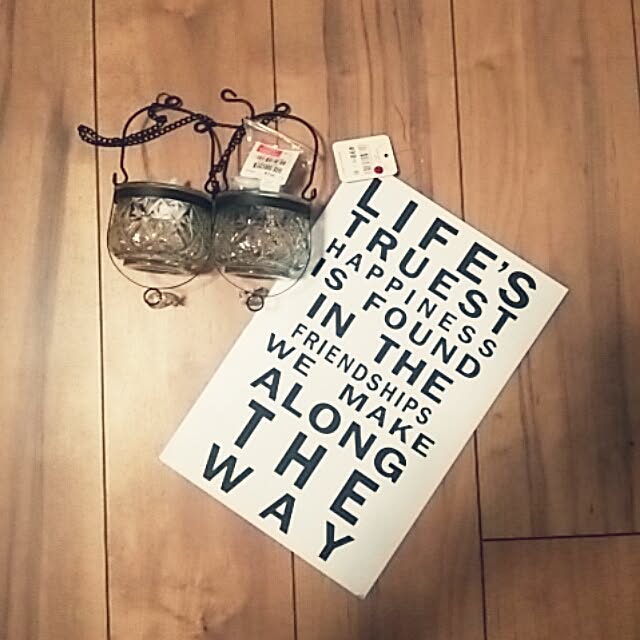 LIFE'S
TRUEST
HAPPINESS
IS FOUND
IN THE
FRIENDSHIPS
WE MAKE
ALONG
THE
WAY